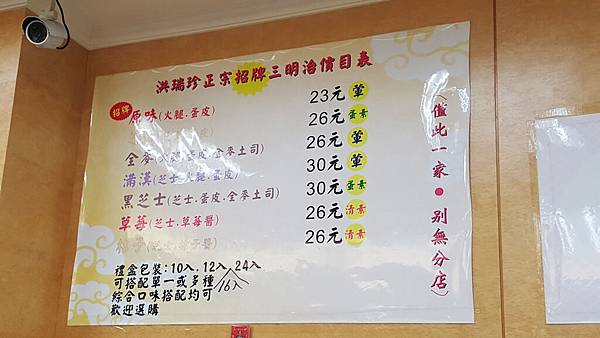 洪瑞珍正宗招牌三明治價目表
招牌 原味(火腿.蛋皮) 23元 葷
26元 蛋素
全麥(火腿.蛋皮.全麥土司) 26元 葷
滿漢(芝士.火腿.蛋皮) 30元 葷
黑芝士(芝士.蛋皮.全麥土司) 30元 蛋素
草莓(芝士.草莓醬) 26元 清素
26元 清素
禮盒包裝:10入.12入.24入
16入
可搭配單一或多種
綜合口味搭配均可
歡迎選購
(值此一家●別無分店)